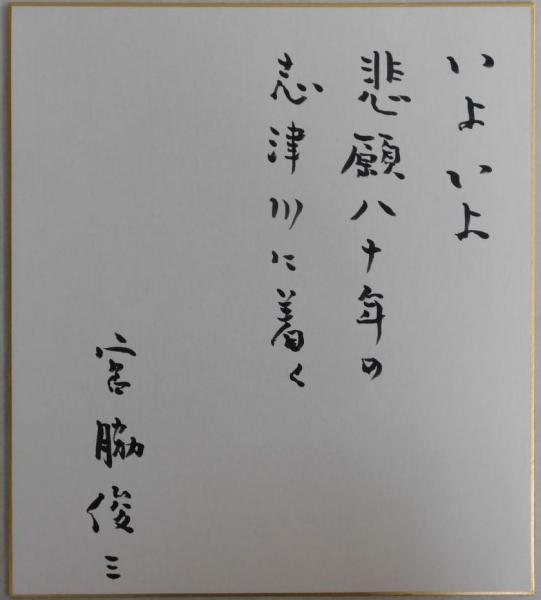 いよいよ
悲願八十年の
志津川に着く
宮脇俊三